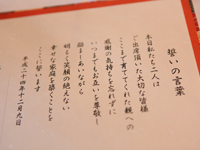 誓いの言葉
本日私たち二人は
ご出席頂いた大切な皆様
ここまで育ててくれた親への
感謝の気持ちを忘れずに
いつまでもお互いを尊敬し
励ましあいながら
明るく笑顔の絶えない
幸せな家庭を築くことを
ここに誓います
平成二十四年十二月九日